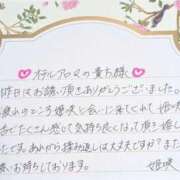 ホテルアロマの貴方様
昨日はお誘い頂きありがとうございました。
お疲れのところ姫咲と会いに来てくれて 姫咲
たくさん感じて気持ち良くなって頂き嬉し
た。あんまり揉み返しは大丈夫ですか？また
お待ちしております。
姫咲